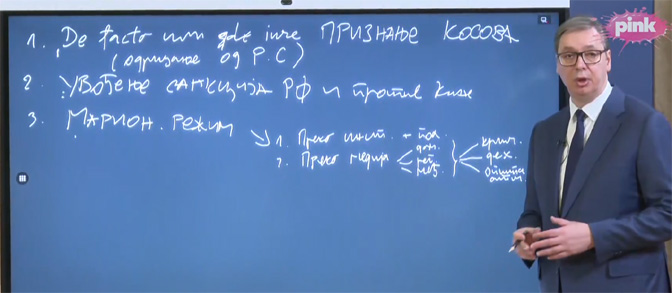 1. De facto или de iure ПРИЗНАЊЕ КОСОВА
(одрицање од Р.С)
2. УВОЂЕЊЕ САНКЦИЈА РФ и против Кине
3. МАРИОН. РЕЖИМ
1. Преко инст. + пол.
2. Преко медија
крим.
дех.
pink